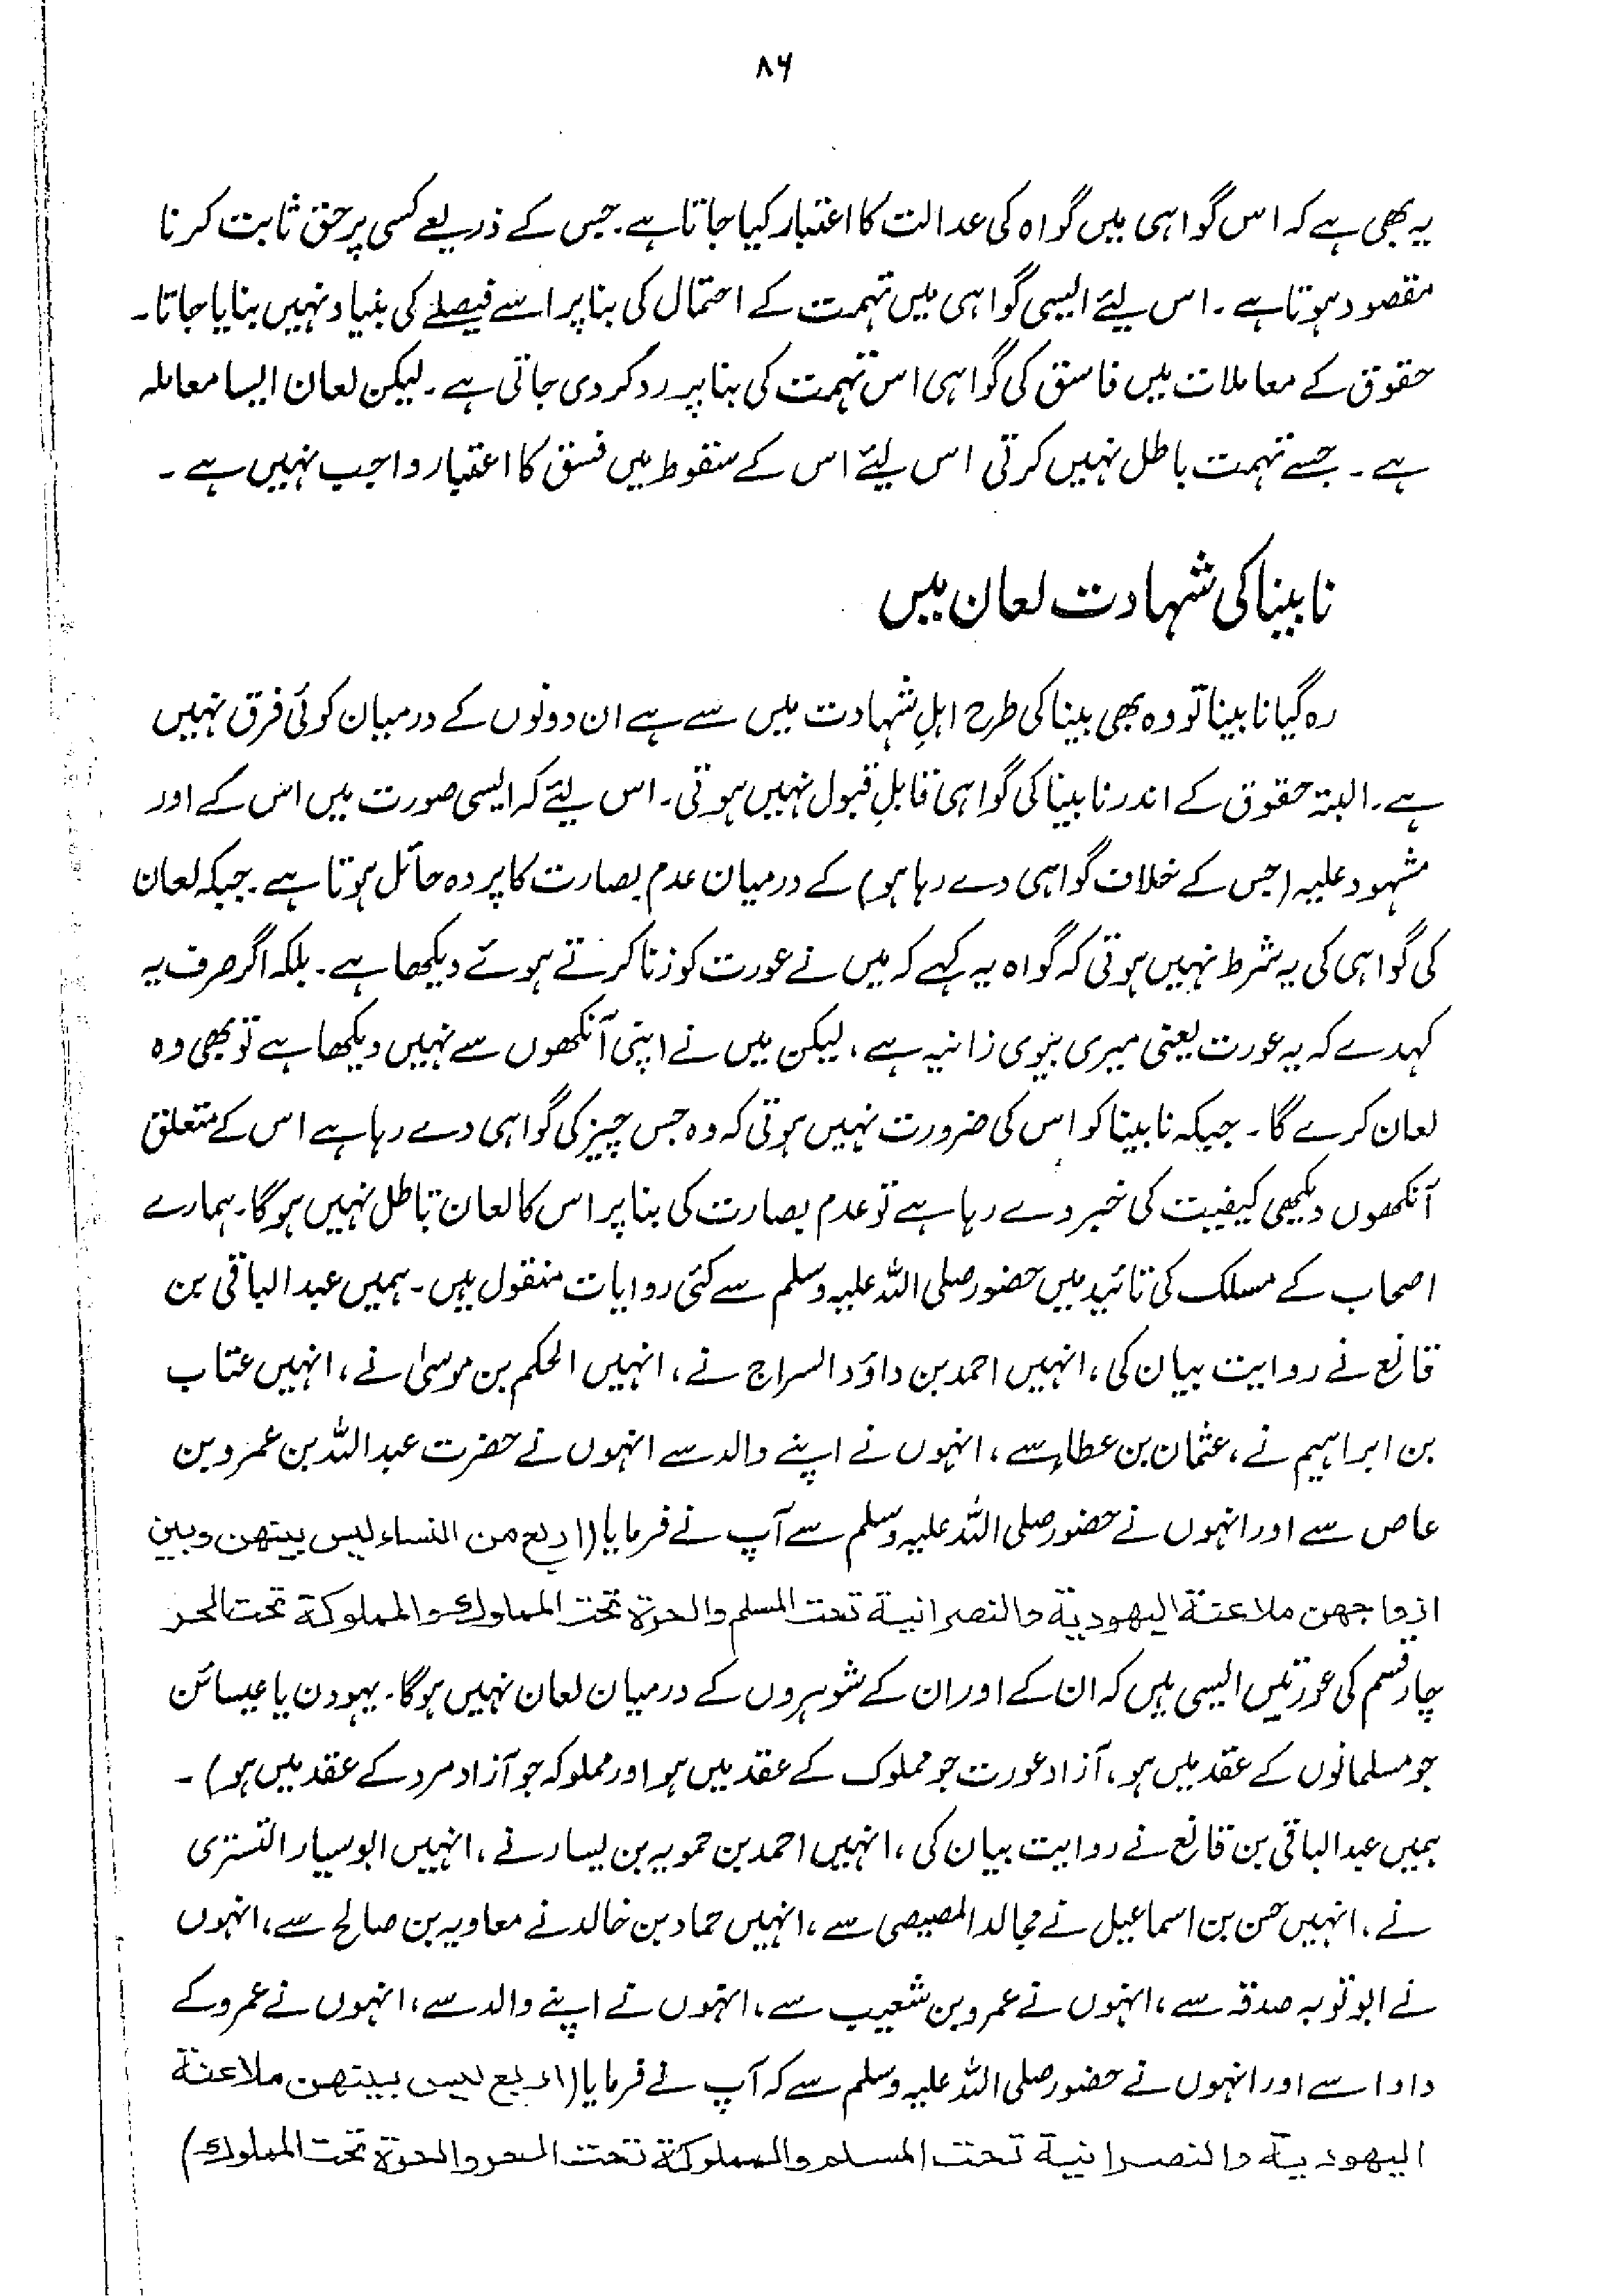 ۸۶
یہ بھی ہے کہ اس گواہی میں گواہ کی عدالت کا اعتبار کیا جاتا ہے۔ جس کے ذریعے کسی پر حق ثابت کرنا
مقصود ہوتا ہے۔ اس لیئے ایسی گواہی میں تہمت کے احتمال کی بنا پر اسے فیصلے کی بنیاد نہیں بنایا جاتا۔
حقوق کے معاملات میں فاسق کی گواہی اس تہمت کی بنا پر رد کر دی جاتی ہے۔ لیکن لعان ایسا معاملہ
ہے۔ جسے تہمت باطل نہیں کرتی اس لیئے اس کے سقوط میں فسق کا اعتبار واجب نہیں ہے۔
نابینا کی شہادت لعان میں
رہ گیا نابینا تو وہ بھی بینا کی طرح اہلِ شہادت میں سے ہے ان دونوں کے درمیان کوئی فرق نہیں
ہے۔ البتہ حقوق کے اندر نابینا کی گواہی قابلِ قبول نہیں ہوتی۔ اس لیئے کہ ایسی صورت میں اس کے اور
مشہود علیہ (جس کے خلاف گواہی دے رہا ہو) کے درمیان عدم بصارت کا پردہ حائل ہوتا ہے۔ جبکہ لعان
کی گواہی کی یہ شرط نہیں ہوتی کہ گواہ یہ کہے کہ میں نے عورت کو زنا کرتے ہوئے دیکھا ہے۔ بلکہ اگر صرف یہ
کہدے کہ یہ عورت یعنی میری بیوی زانیہ ہے، لیکن میں نے اپنی آنکھوں سے نہیں دیکھا ہے تو بھی وہ
لعان کرے گا۔ جبکہ نابینا کو اس کی ضرورت نہیں ہوتی کہ وہ جس چیز کی گواہی دے رہا ہے اس کے متعلق
آنکھوں دیکھی کیفیت کی خبر دے رہا ہے تو عدم بصارت کی بنا پر اس کا لعان باطل نہیں ہوگا۔ ہمارے
اصحاب کے مسلک کی تائید میں حضور صلی اللہ علیہ وسلم سے کئی روایات منقول ہیں۔ ہمیں عبد الباقی بن
قانع نے روایت بیان کی، انہیں احمد بن داؤد السراج نے، انہیں الحکم بن موسیٰ نے، انہیں عتاب
بن ابراہیم نے، عثمان بن عطاء سے، انہوں نے اپنے والد سے انہوں نے حضرت عبد اللہ بن عمرو بن
عاص سے اور انہوں نے حضور صلی اللہ علیہ وسلم سے آپ نے فرمایا (اربع من النساء لیس بینھن وبین
ازواجھن ملاعنۃ الیھودیۃ والنصرانیۃ تحت المسلم والحرۃ تحت المملوک والمملوکۃ تحت الحر
چار قسم کی عورتیں ایسی ہیں کہ ان کے اور ان کے شوہروں کے درمیان لعان نہیں ہوگا۔ یہودن یا عیسائن
جو مسلمانوں کے عقد میں ہو، آزاد عورت جو مملوک کے عقد میں ہو اور مملوکہ جو آزاد مرد کے عقد میں ہو)۔
ہمیں عبد الباقی بن قانع نے روایت بیان کی، انہیں احمد بن حمویہ بن یسار نے، انہیں ابو سیار التستری
نے، انہیں حسن بن اسماعیل نے مجالد المصیصی سے، انہیں حماد بن خالد نے معاویہ بن صالح سے، انہوں
نے ابو توبہ صدقہ سے، انہوں نے عمرو بن شعیب سے، انہوں نے اپنے والد سے، انہوں نے عمرو کے
دادا سے اور انہوں نے حضور صلی اللہ علیہ وسلم سے کہ آپ نے فرمایا (اربع لیس بینھن ملاعنۃ
الیھودیۃ والنصرانیۃ تحت المسلم والمملوکۃ تحت الحر والحرۃ تحت المملوک)